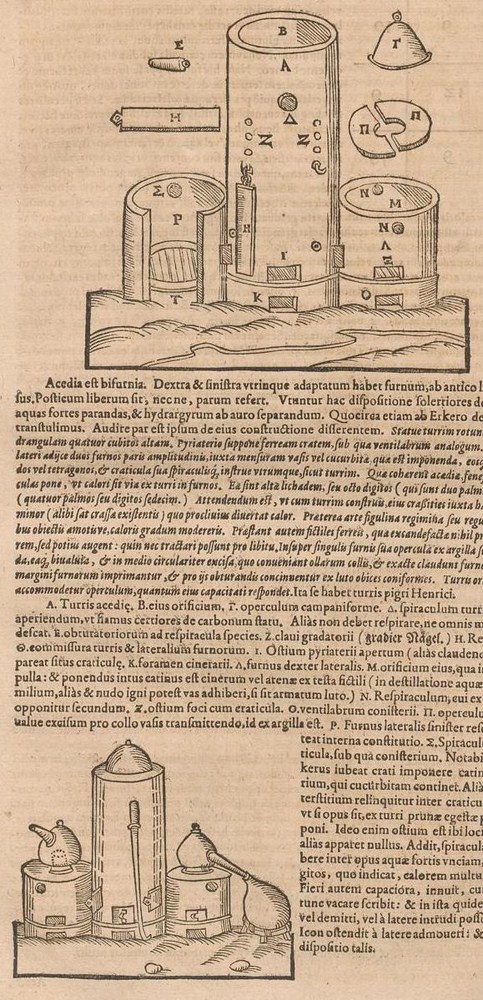 B
Ε
A
Γ
Η
Δ
Π Π
Z Z
Σ
N
M
P
H
N
Λ
Ξ
I
T
K
O
Acedia est bifurnia. Dextra & sinistra vtrinque adaptatum habet furnum, ab antico l
sus. Posticum liberum sit, nec ne, parum refert. Vtuntur hac dispositione solertiores d
aquas fortes parandas, & hydrargyrum ab auro separandum. Quocirca etiam ab Erkero de
transtulimus. Audite par est ipsum de eius constructione disserentem. Statue turrim rotun
drangulam quatuor cubitos altam. Pyriaterio suppone ferream cratem, sub qua ventilabrum analogum.
lateri adijce duos furnos paris amplitudinis, iuxta mensuram vasis vel cucurbitæ quæ est imponenda, eosq
dos vel tetragonos, & craticula sua spiraculisq; instrue vtrumque, sicut turrim. Qua coherent acadia, fene
culas pone, vt calori sit via ex turri in furnos. Ea sint altæ lichadem, seu octo digitos (qui sunt duo palm
(quatuor palmos seu digitos sedecim.) Attendendum est, vt cum turrim construis, eius crassities iuxta
minor (alibi sat crassa existentis) quo procliuius diuertat calor. Præterea arte figulina regimina seu regu
bus obiectis amotisve, caloris gradum modereris. Præstant autem fictiles ferreis, quæ excandefactæ nihil pr
rem, sed potius augent: quin nec tractari possunt pro libitu. Insuper singulis furnis sua opercula ex argilla
da, eaq; biualuia, & in medio circulariter excisa, quo conueniant ollarum collis, & exacte claudant furn
margini furnorum imprimantur, & pro ijs obturandis concinnentur ex luto obices conformes. Turris or
accommodetur operculum, quantum eius capacitati respondet. Ita se habet turris pigri Henrici.
A. Turris acediæ. B. eius orificium, Γ. operculum campaniforme. Δ. spiraculum turr
aperiendum, vt fiamus certiores de carbonum statu. Aliàs non debet respirare, ne omnis m
descat. E. obturatoriorum ad respiracula species. Z. claui gradatorii (gradier Nägel.) H. Re
Θ. commissura turris & lateralium furnorum. I. Ostium pyriaterii apertum (aliàs claudend
pareat situs craticulę. K. foramen cinerarii. Λ. furnus dexter lateralis. M. orificium eius, qua i
pulla: & ponendus intus catinus est cinerum vel arenæ ex testa fictili (in destillatione aquæ
milium, aliàs & nudo igni potest vas adhiberi, si sit armatum luto.) N. Respiraculum, eui ex
opponitur secundum. Ξ. ostium foci cum craticula. O. ventilabrum conisterii. Π. opercul
ualue excisum pro collo vasis transmittendo, id ex argilla est. P. Furnus lateralis sinister res
teat interna constitutio. Σ. Spiracul
ticula, sub qua conisterium. Notabi
kerus iubeat crati imponere catin
rium, qui cucurbitam continet. Aliâ
terstitium relinquitur inter craticu
vt si opus sit, ex turri prunæ egestæ p
poni. Ideo enim ostium est ibi loci
aliàs apparet nullus. Addit, spiracula
bere inter opus aquæ fortis vnciam,
gitos, quo indicat, calorem multu
Fieri autem capaciora, innuit, cu
tunc vacare scribit: & in ista quide
vel demitti, vel à latere intrudi poss
Icon ostendit à latere admoueri: &
dispositio talis.